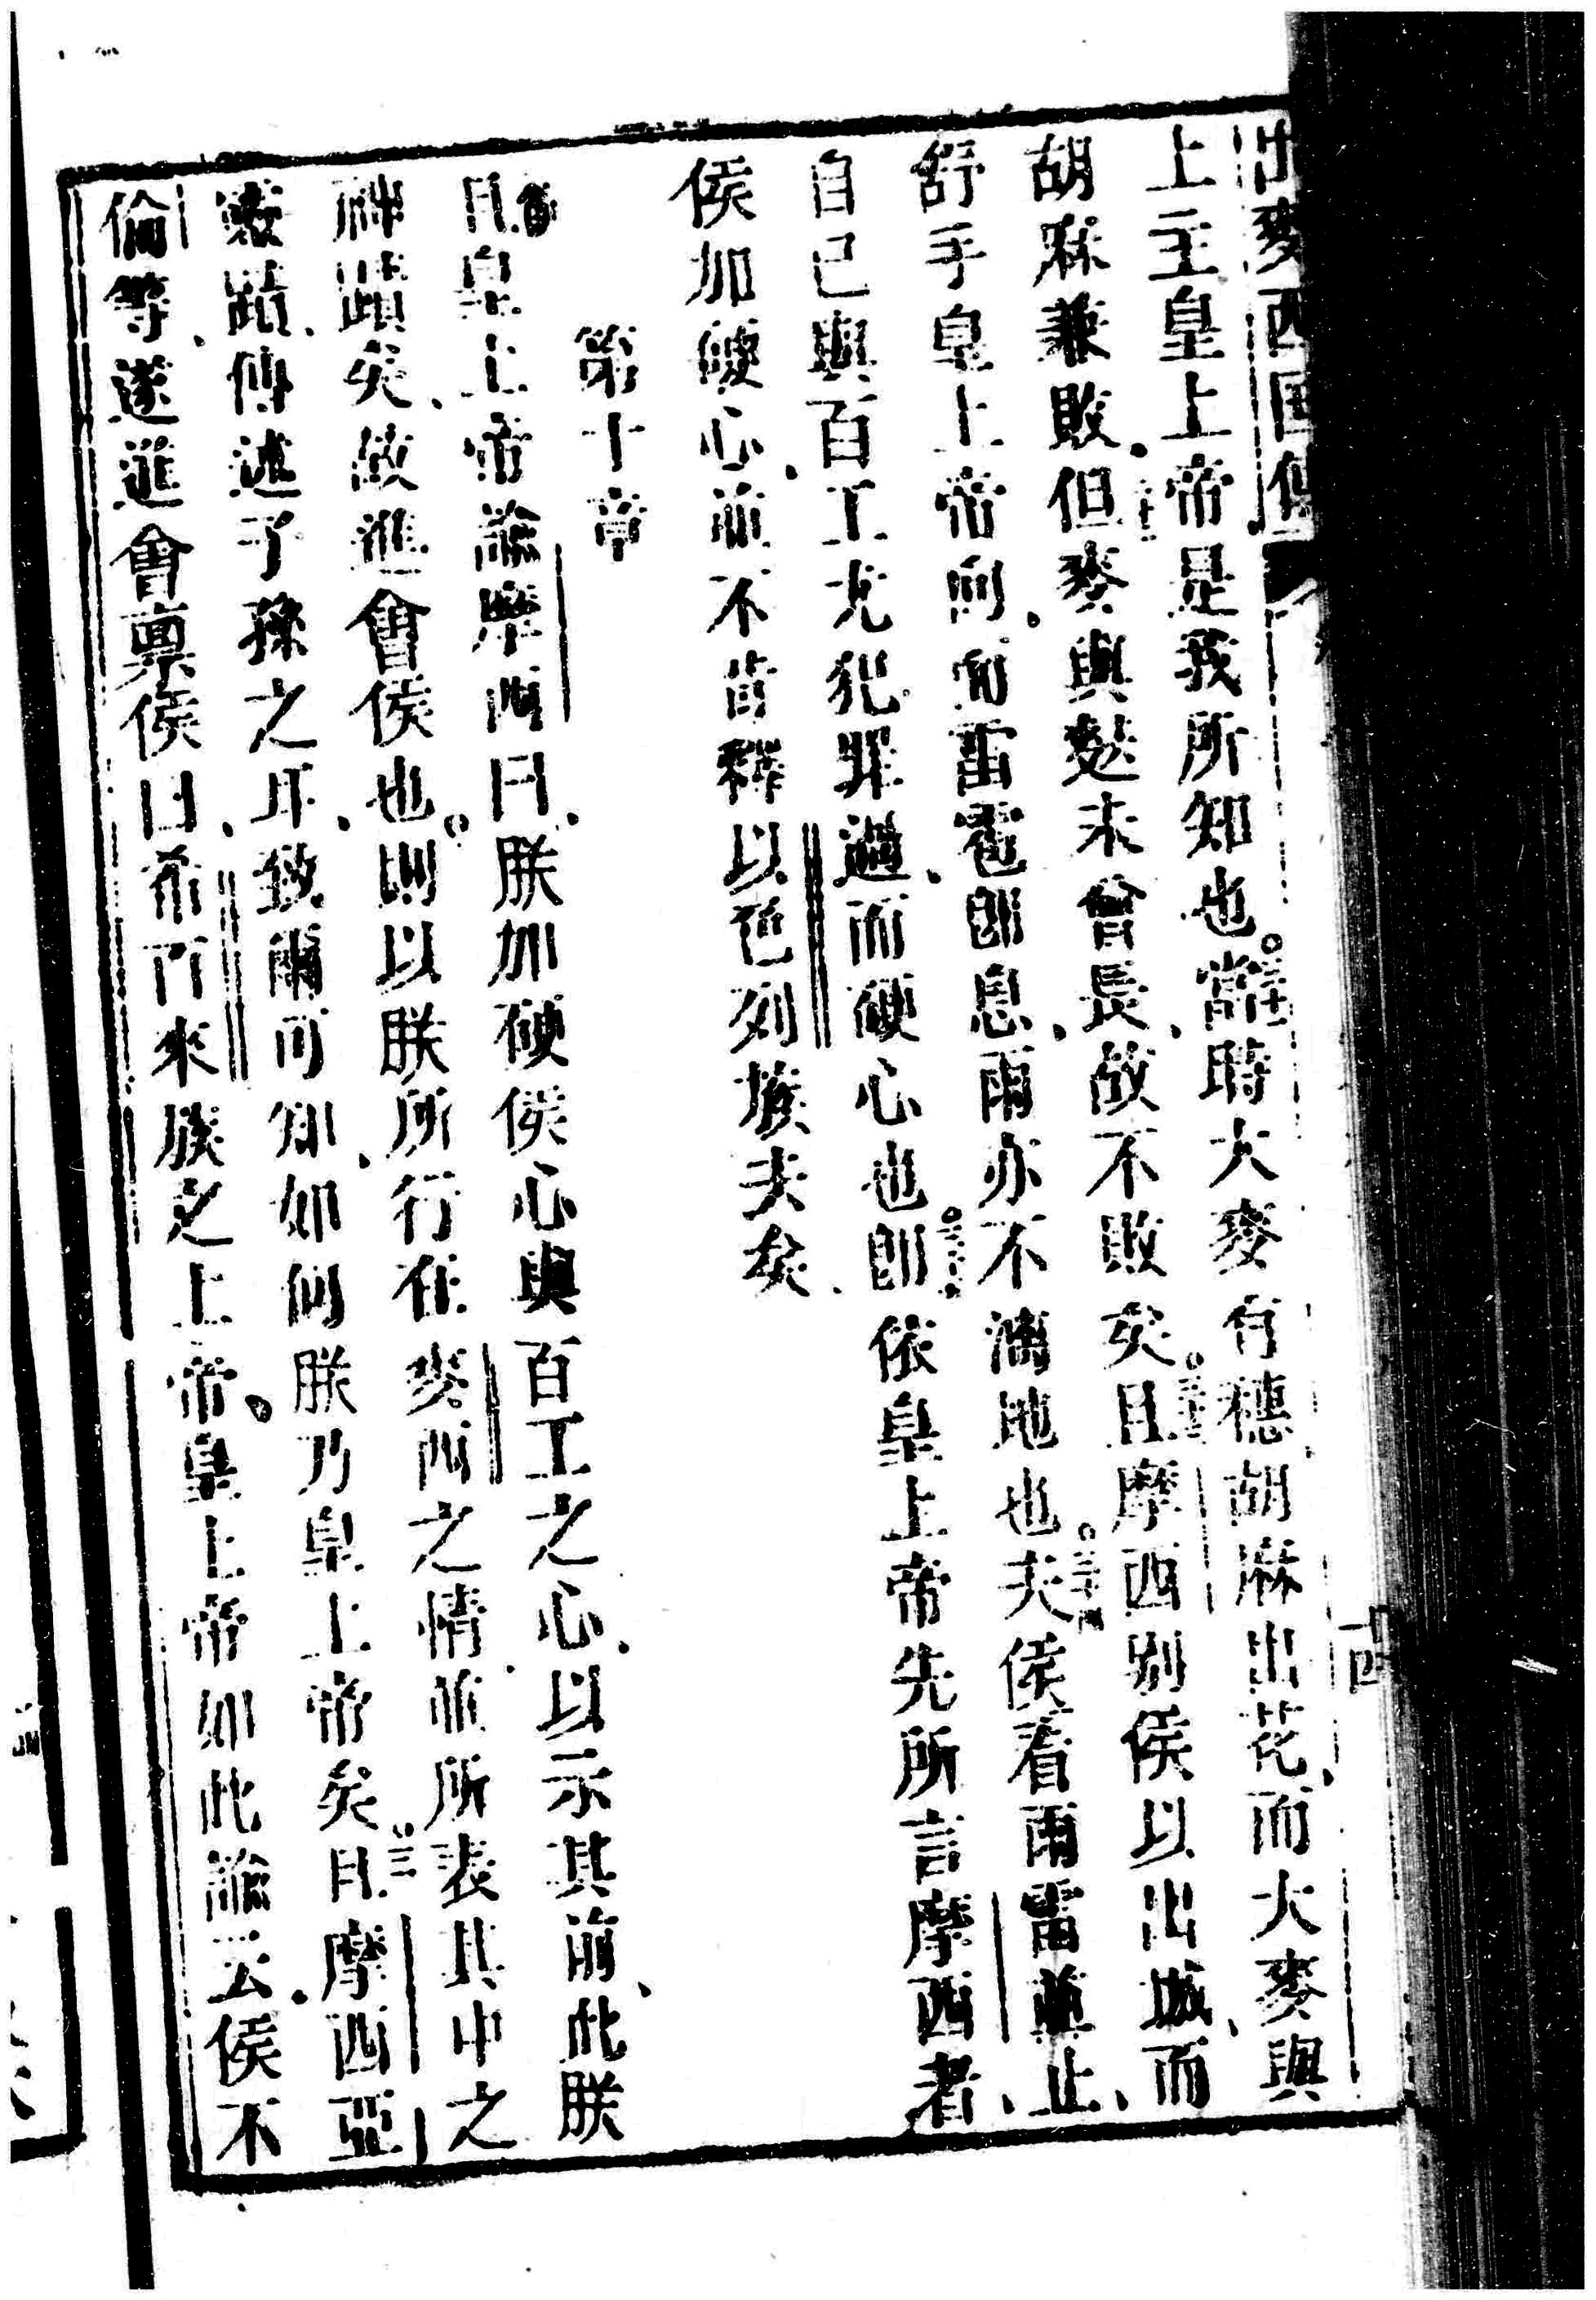 出麥西國傳 十四
上主皇上帝是我所知也。三十一當時大麥有穗、胡麻出花、而大麥與
胡麻兼敗、三十二但麥與未曾長、故不敗矣。三十三且摩西別侯以出城、而
舒手皇上帝向、而雷雹即息、雨亦不滴地也。三十四夫侯看雨雷並止、
自己與百工尤犯罪過、而硬心也。即依皇上帝先所言摩西者、
侯加硬心、並不肯釋以色列族去矣、
第十章
且皇上帝諭摩西曰、朕加硬侯心與百工之心、以示其前、此朕
神蹟矣、故進會侯也。則以朕所行在麥西之情、並所表其中之
蹟、傳述子孫之耳、致爾可知、如何朕乃皇上帝矣。三且摩西亞
倫等、遂進會稟侯曰、希百來族之上帝、皇上帝如此諭云、侯不